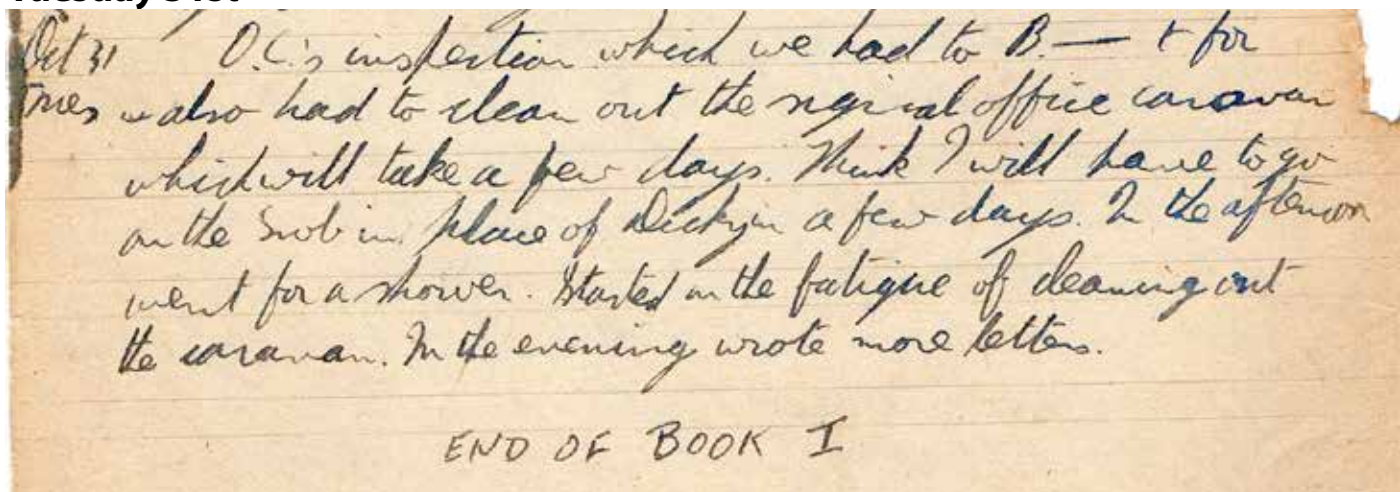 Tuesday 31st
Oct 31 O.C.'s inspection which we had to B. — & for
Tues also had to clean out the signal office caravan
which will take a few days. Think I will have to go
on the in place of Dicky in a few days. In the afternoon
went for a shower. Started on the fatigue of cleaning out
the caravan. In the evening wrote more letters.
END OF BOOK I